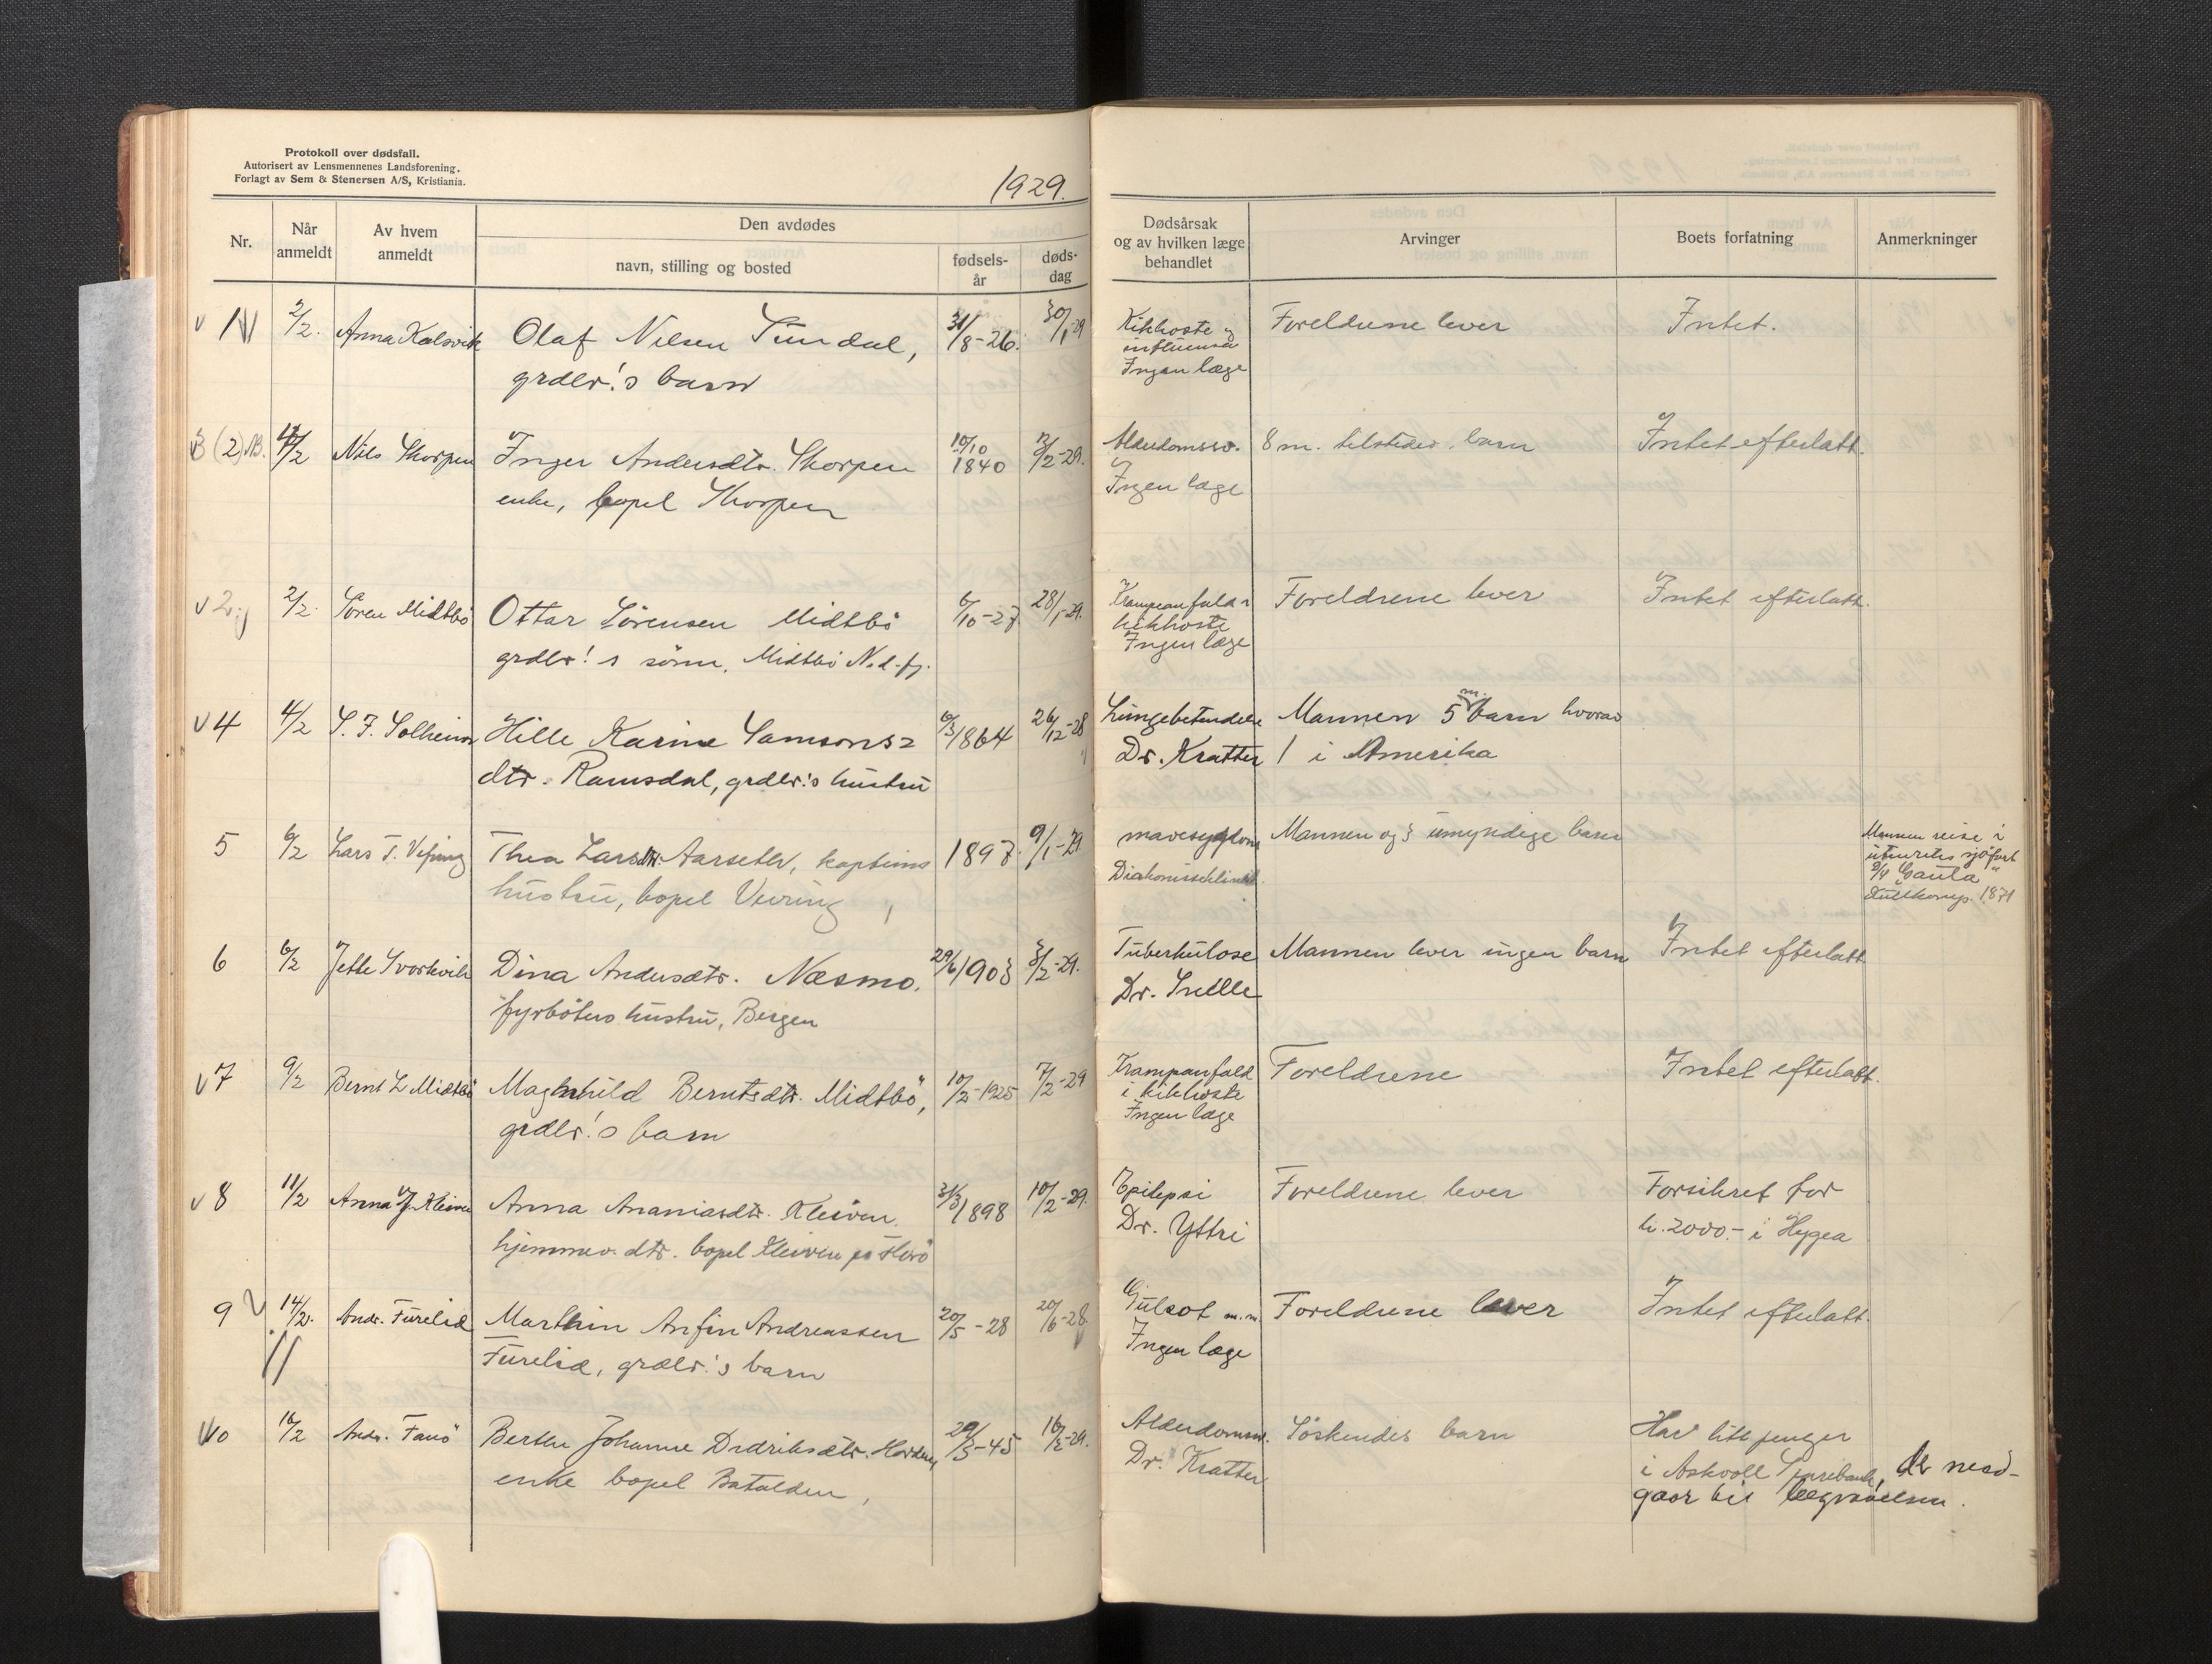 Protokoll over dødsfall.
Autorisert av Lensmennenes Landsforening.
Forlagt av Sem & Stenersen A/S, Kristiania.
1929.
Nr.
Når anmeldt
Av hvem anmeldt
Den avdødes
navn, stilling og bosted
fødsels-år
døds-dag
Dødsårsak og av hvilken læge behandlet
Arvinger
Boets forfatning
Anmerkninger
1 2/2. Anna Kalsvik Olaf Nilsen Sundal, 31/8-26. 30/1 29 Kikhoste og Foreldrene lever Intet.
grdbr.'s barn influensa
Ingen læge
3 (2) 2/2 Nils Skorpen Inger Andersdtr. Skorpen 10/10 1840 /2-29. Alderdomssv. 8 m. tilstedev. barn Intet efterlatt.
enke, bopel Skorpen Ingen læge
v 2 2/2. Sören Midtbö Ottar Sörensen Midtbö 6/10-27 28/1-29. Krampeanfald i Foreldrene lever Intet efterlatt.
grdbr!s sönn, Midtbö kikhoste
Ingen læge
v 4 4/2 S. F. Solheim Hille Karine Samsons= 6/3 1864 26/12-28 Lungebetendelse Mannen 5 m. barn hvorav
dtr. Ramsdal, grdbr.'s hustru Dr. Kratter 1 i Amerika
5 6/2 Lars T. Vefring Thea Larsdtr. Aarseth, kapteins 1897. 9/1-29. mavesygdom Mannen og 3 umyndige barn Mannen reise i
hustru, bopel Vevring Diakonisseklinik. utenriks sjöfart
"Gaula"
1871
6 6/2 Jette Svortevik Dina Andersdtr. Næsmo. 29/6 1903 3/2-29. Tuberkulose Mannen lever ingen barn Intet efterlatt
fyrböters hustru, Bergen Dr. Snelle
v 7 9/2 Bernt L Midtbö Maghnild Berntsdtr. Midtbö, 10/2-1925 7/2-29 Krampanfald Foreldrene Intet efterlatt.
grdbr.'s barn i kikhoste
Ingen læge
v 8 11/2 Anna J. Kleiven Anna Ananiasdtr. Kleiven. 31/3 1898 10/2-29. Epilepsi Foreldrene lever Forsikret for
hjemmev. dtr. bopel Kleiven Dr. Yttri kr. 2000.- i Hygea
9 14/2. Andr. Furelid Marthin Anfin Andreassen 20/5-28 20/6-28. Gulsot m.m. Foreldrene lever Intet efterlatt.
Furelid, grdbr.'s barn Ingen læge
10 16/2 Andr. Fanö Berthe Johanne Didriksdtr. Hovden, 29/3-45 16/2-29. Alderdomssv. Söskendes barn Har litt penger
enke bopel Batalden, Dr. Kratter i Askvoll Sparebank, de med-
gaar til begravelsen.